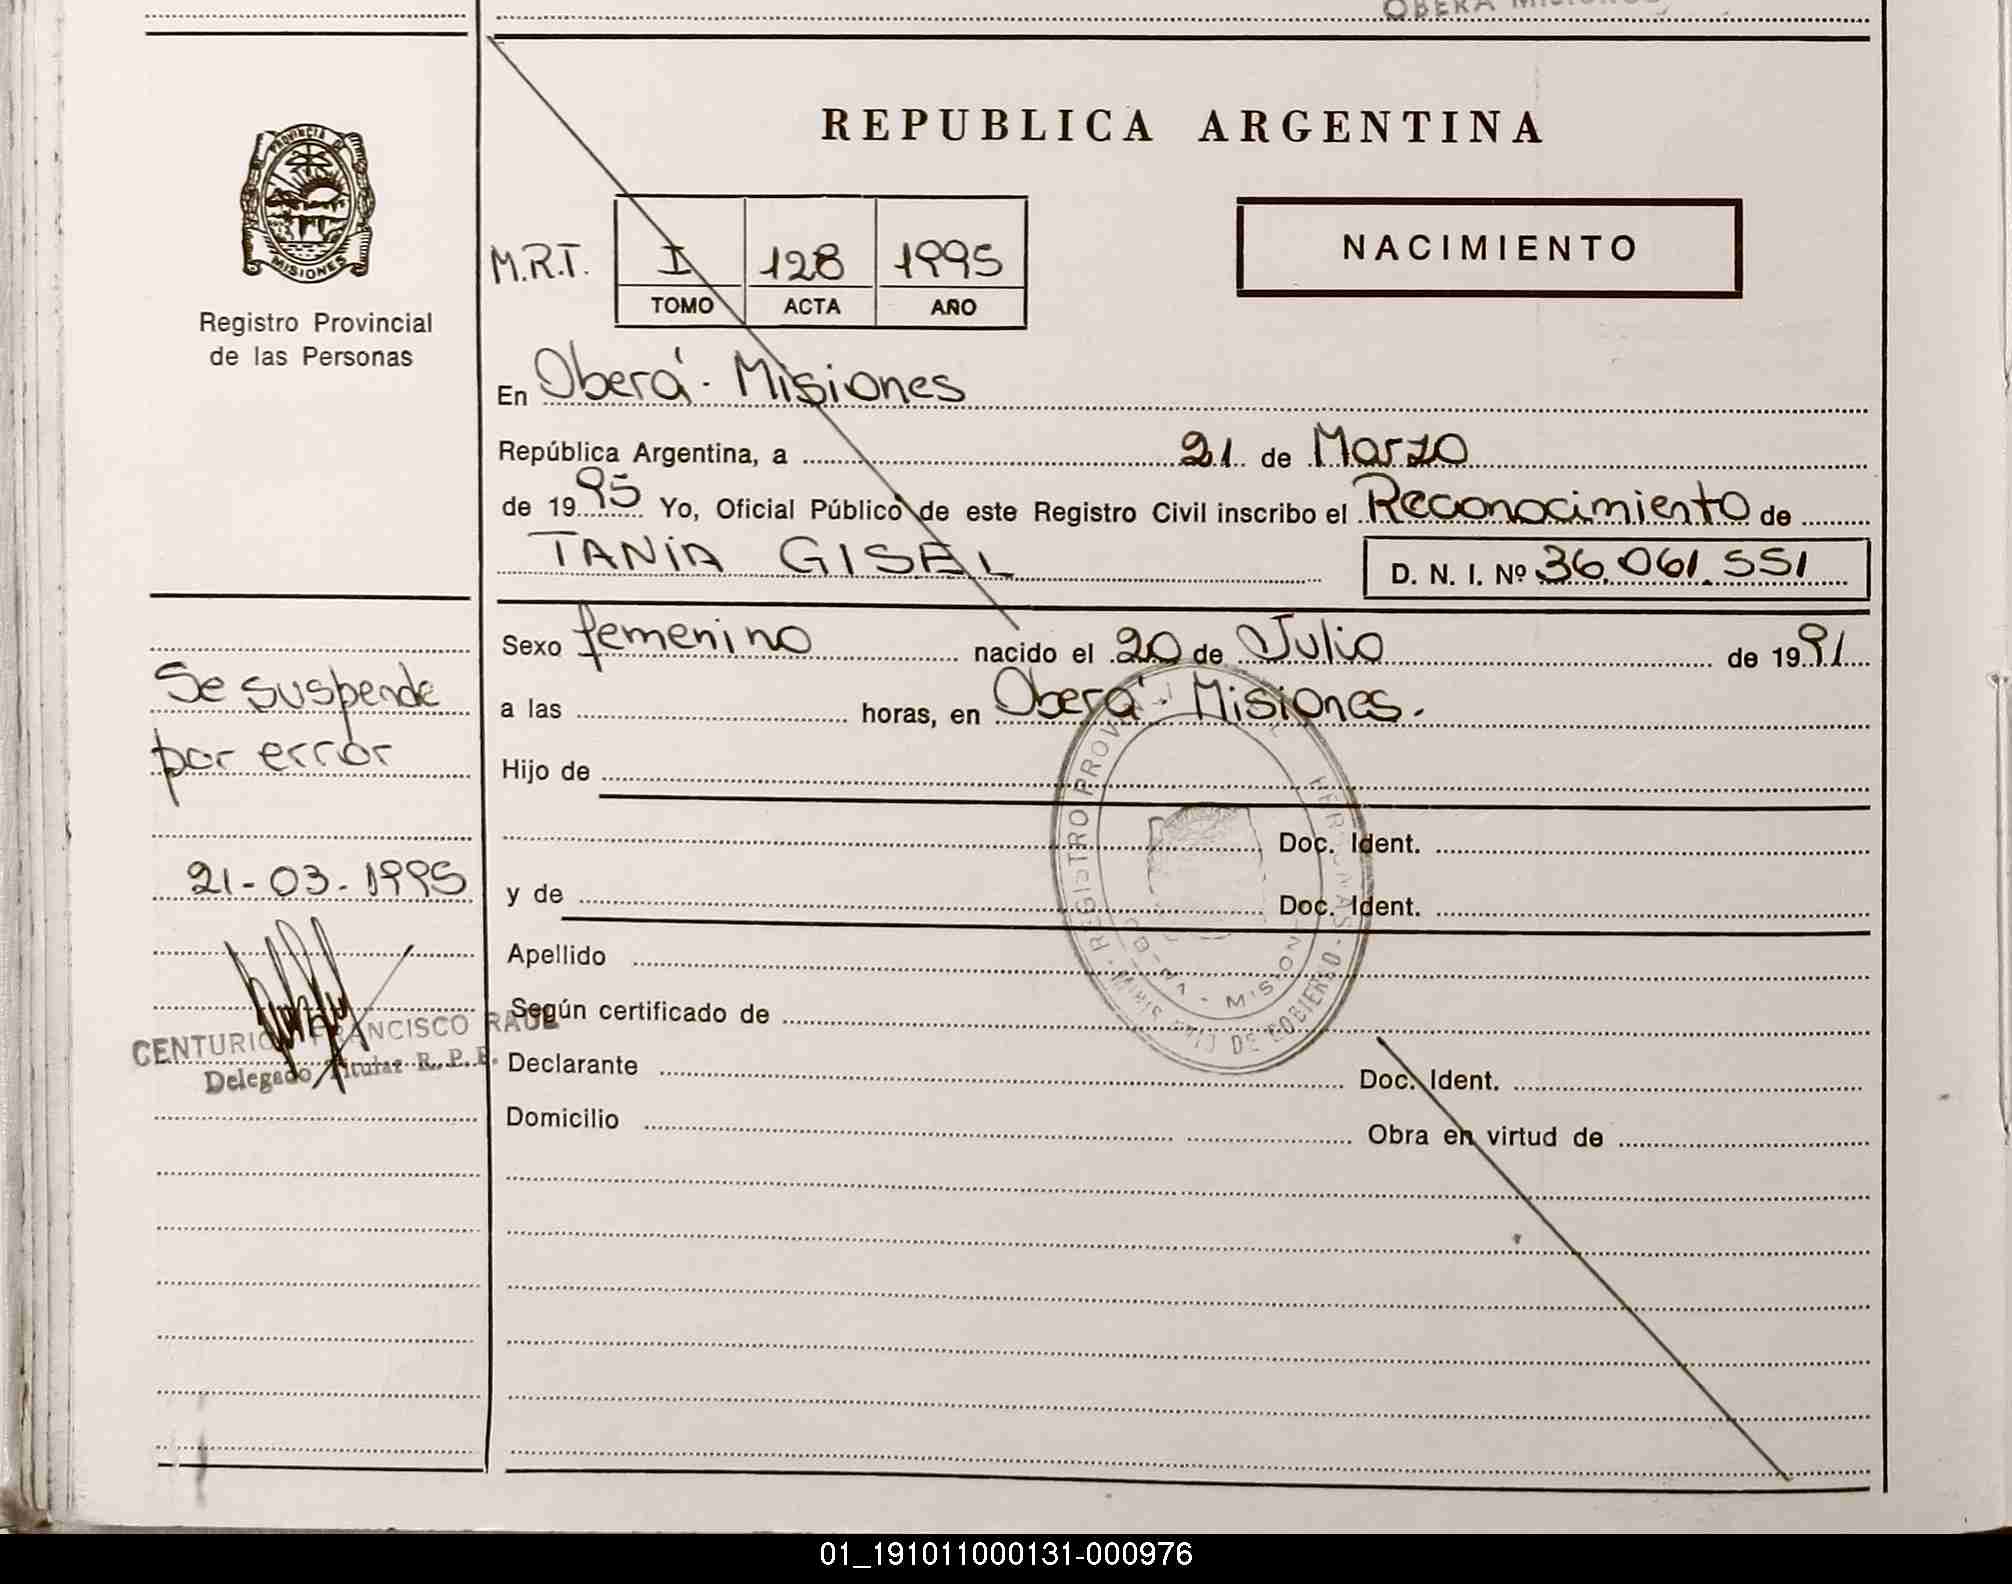 OBERA MISIONES
REPUBLICA ARGENTINA
PROVINCIA DE
MISIONES
Registro Provincial
de las Personas
NACIMIENTO
M.R.T. I 128 1995
TOMO ACTA AÑO
En Oberá - Misiones
República Argentina, a 21 de Marzo
de 1995 Yo, Oficial Público de este Registro Civil inscribo el Reconocimiento de
TANIA GISEL D. N. I. Nº 36.061.551
Sexo femenino nacido el 20 de Julio de 1991
a las horas, en Oberá - Misiones.
Hijo de
Doc. Ident.
y de Doc. Ident.
Apellido
Según certificado de
Declarante Doc. Ident.
Domicilio Obra en virtud de
Se suspende
por error
21-03-1995
CENTURION FRANCISCO RAUL
Delegado Titular R.P.P.
REGISTRO PROVINCIAL DE LAS PERSONAS - MINISTERIO DE GOBIERNO
MISIONES
01_191011000131-000976